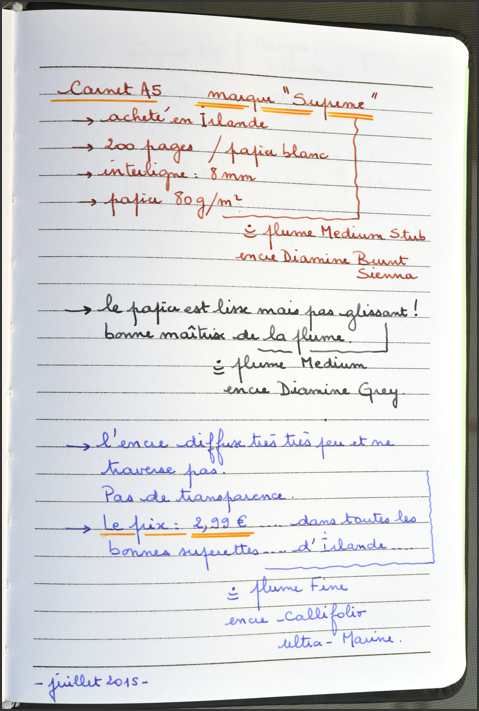 Carnet A5 marque "Supreme"
→ acheté en Irlande
→ 200 pages / papier blanc
→ interligne : 8 mm
→ papier 80 g/m²
plume Medium Stub
encre Diamine Burnt
Sienna
→ le papier est lisse mais pas glissant !
bonne maîtrise de la plume.
plume Medium
encre Diamine Grey.
→ l'encre diffuse très très peu et ne
traverse pas.
Pas de transparence.
→ Le prix : 2,99 € .... dans toutes les
bonnes superettes .... d'Irlande ....
plume Fine
encre Callifolio
ultra-Marine.
- juillet 2015 -